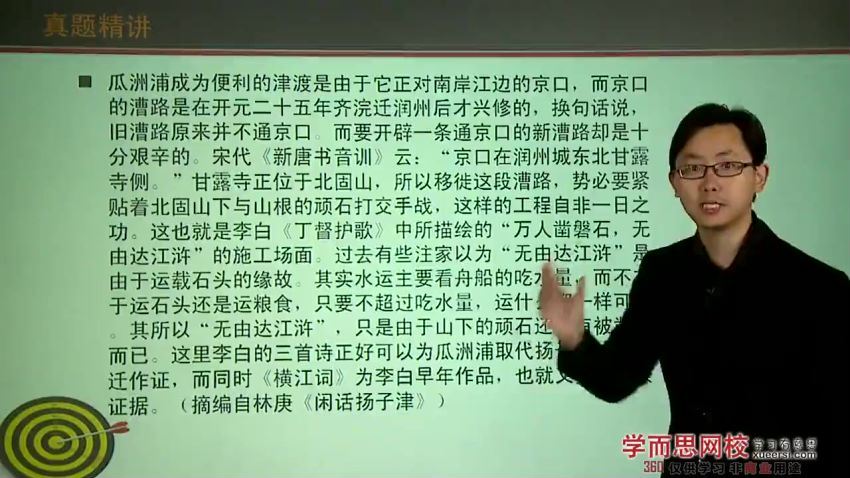 真题精讲
瓜洲浦成为便利的津渡是由于它正对南岸江边的京口，而京口
的漕路是在开元二十五年齐浣迁润州后才兴修的，换句话说，
旧漕路原来并不通京口。而要开辟一条通京口的新漕路却是十
分艰辛的。宋代《新唐书音训》云：“京口在润州城东北甘露
寺侧。”甘露寺正位于北固山，所以移徙这段漕路，势必要紧
贴着北固山下与山根的顽石打交手战，这样的工程自非一日之
功。这也就是李白《丁督护歌》中所描绘的“万人凿磐石，无
由达江浒”的施工场面。过去有些注家以为“无由达江浒”是
由于运载石头的缘故。其实水运主要看舟船的吃水量，而不
于运石头还是运粮食，只要不超过吃水量，运什 一样可
。其所以“无由达江浒”，只是由于山下的顽石还 被
而已。这里李白的三首诗正好可以为瓜洲浦取代扬
迁作证，而同时《横江词》为李白早年作品，也就
证据。（摘编自林庚《闲话扬子津》）
学而思网校 学习有意思
xueersi.com
360 仅供学习 非商业用途